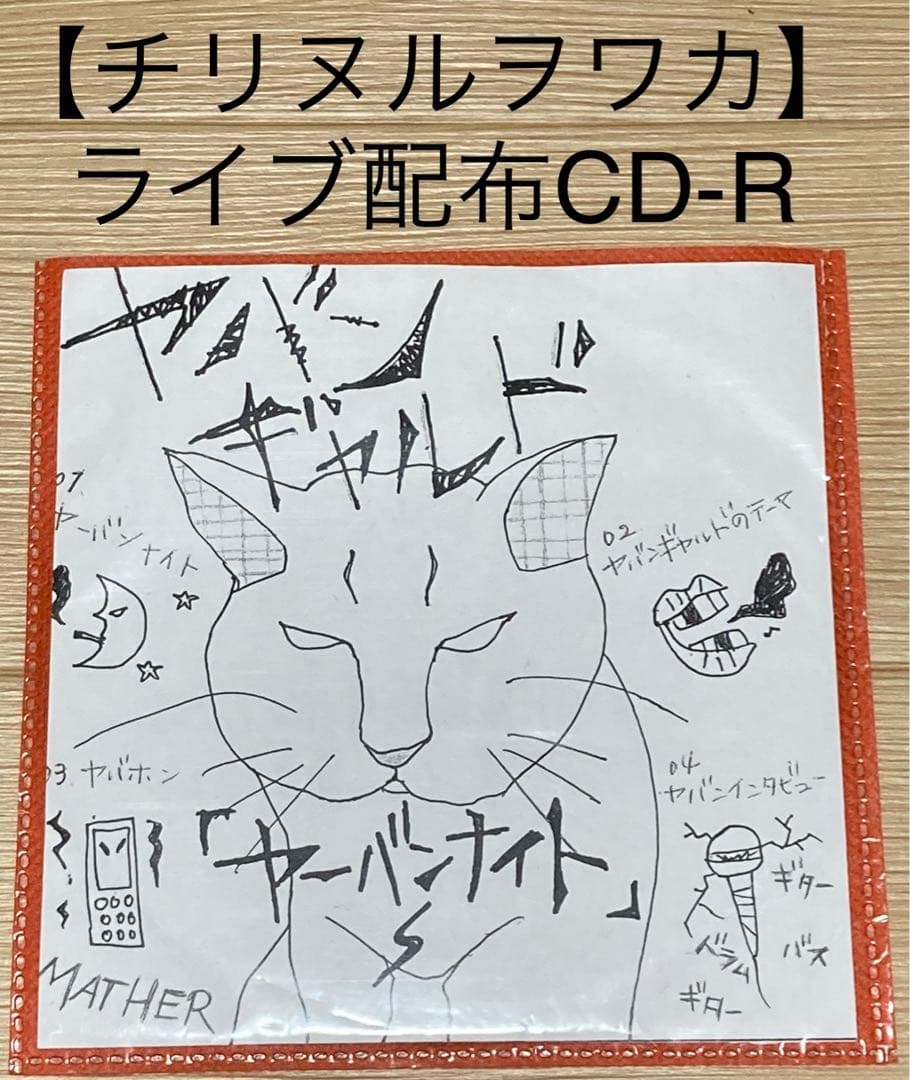 【チリヌルヲワカ】
ライブ配布CD-R
ヤバン
ギャルド
01.
ヤーバンナイト
02
ヤバンギャルドのテーマ
03.ヤバホン
04
ヤバンインタビュー
「ヤーバンナイト」
ギター
バス
ギター
MATHER